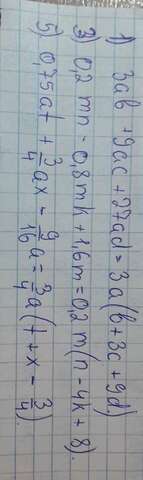 1) 3ab + 9ac + 27ad = 3a(b + 3c + 9d)
3) 0,2 mn - 0,8mk + 1,6m = 0,2 m(n - 4k + 8).
5) 0,75at + 3/4 ax - 9/16 a = 3/4 a(t + x - 3/4).